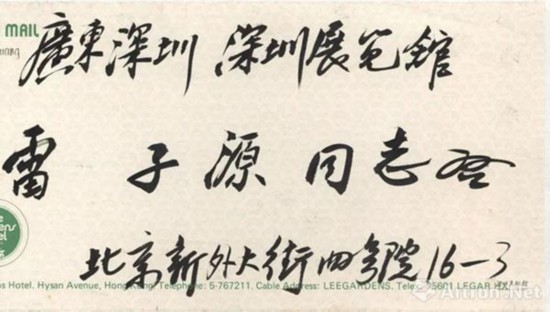 MAIL
廣東深圳 深圳展览館
雷子源同志啟
北京新外大街四号院16-3
os Hotel. Hysan Avenue, Hong Kong. Telephone: 5-767211. Cable Address: LEEGARDENS. Telex: 75601 LEGAR HX
Artron.Net